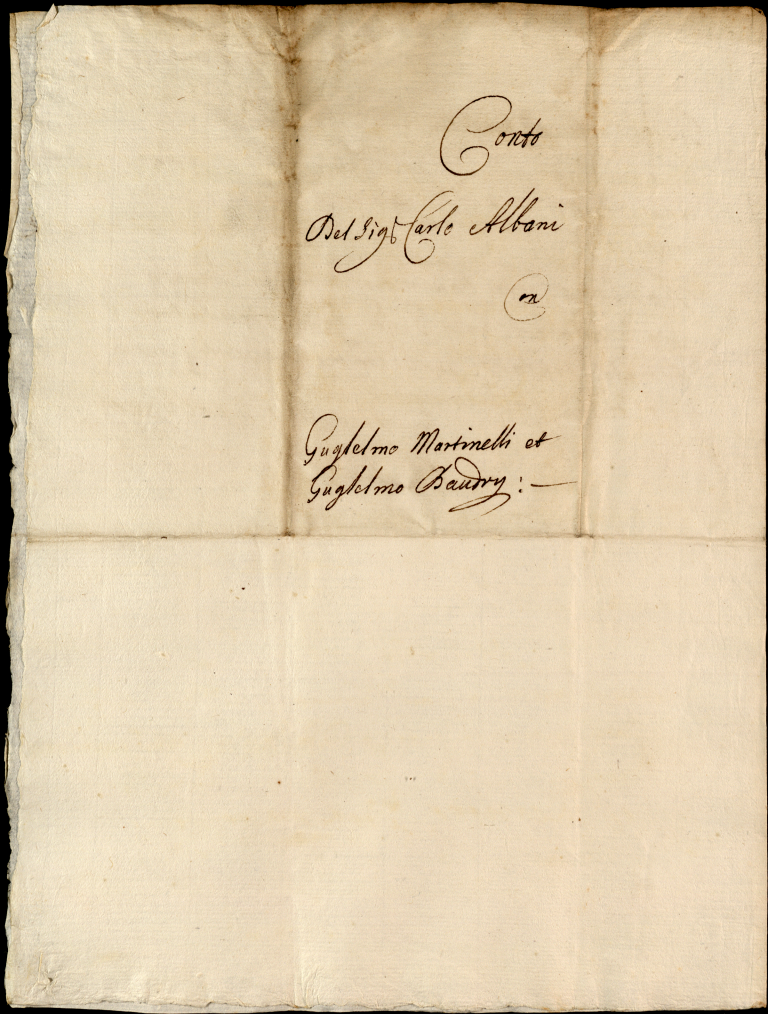 Conto
Del Sigr Carlo Albani
on
Guglielmo Martinelli et
Guglielmo Baudry : —